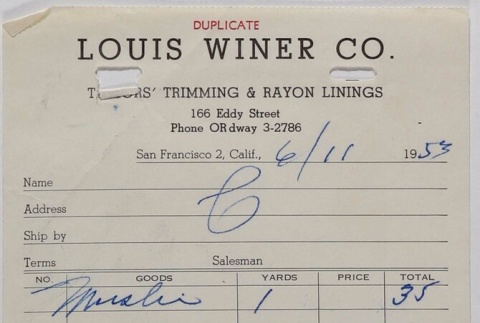 DUPLICATE
LOUIS WINER CO.
TAILORS' TRIMMING & RAYON LININGS
166 Eddy Street
Phone ORdway 3-2786
San Francisco 2, Calif., 6/11 1953
Name
Address C
Ship by
Terms Salesman
NO. GOODS YARDS PRICE TOTAL
Muslin 1 35